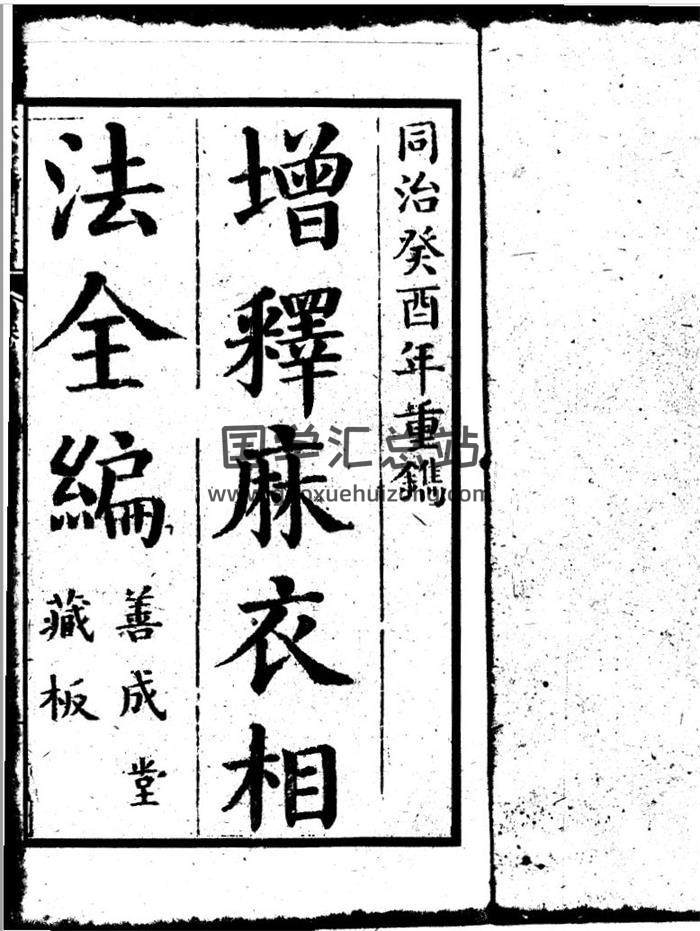 同治癸酉年重鐫
增釋麻衣相
法全編
善成堂
藏板
国学汇总站
www.guoxuehuizong.com